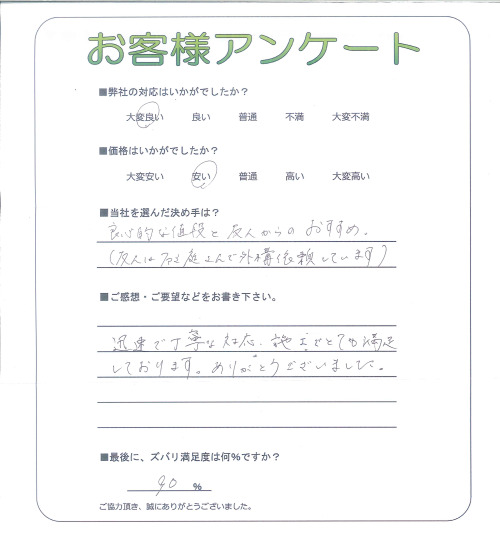 お客様アンケート
■弊社の対応はいかがでしたか？
大変良い 良い 普通 不満 大変不満
■価格はいかがでしたか？
大変安い 安い 普通 高い 大変高い
■当社を選んだ決め手は？
良心的な値段と友人からのおすすめ。
(友人は さんで外構依頼しています)
■ご感想・ご要望などをお書き下さい。
迅速で丁寧な対応、施工でとても満足
しております。ありがとうございました。
■最後に、ズバリ満足度は何％ですか？
90 ％
ご協力頂き、誠にありがとうございました。